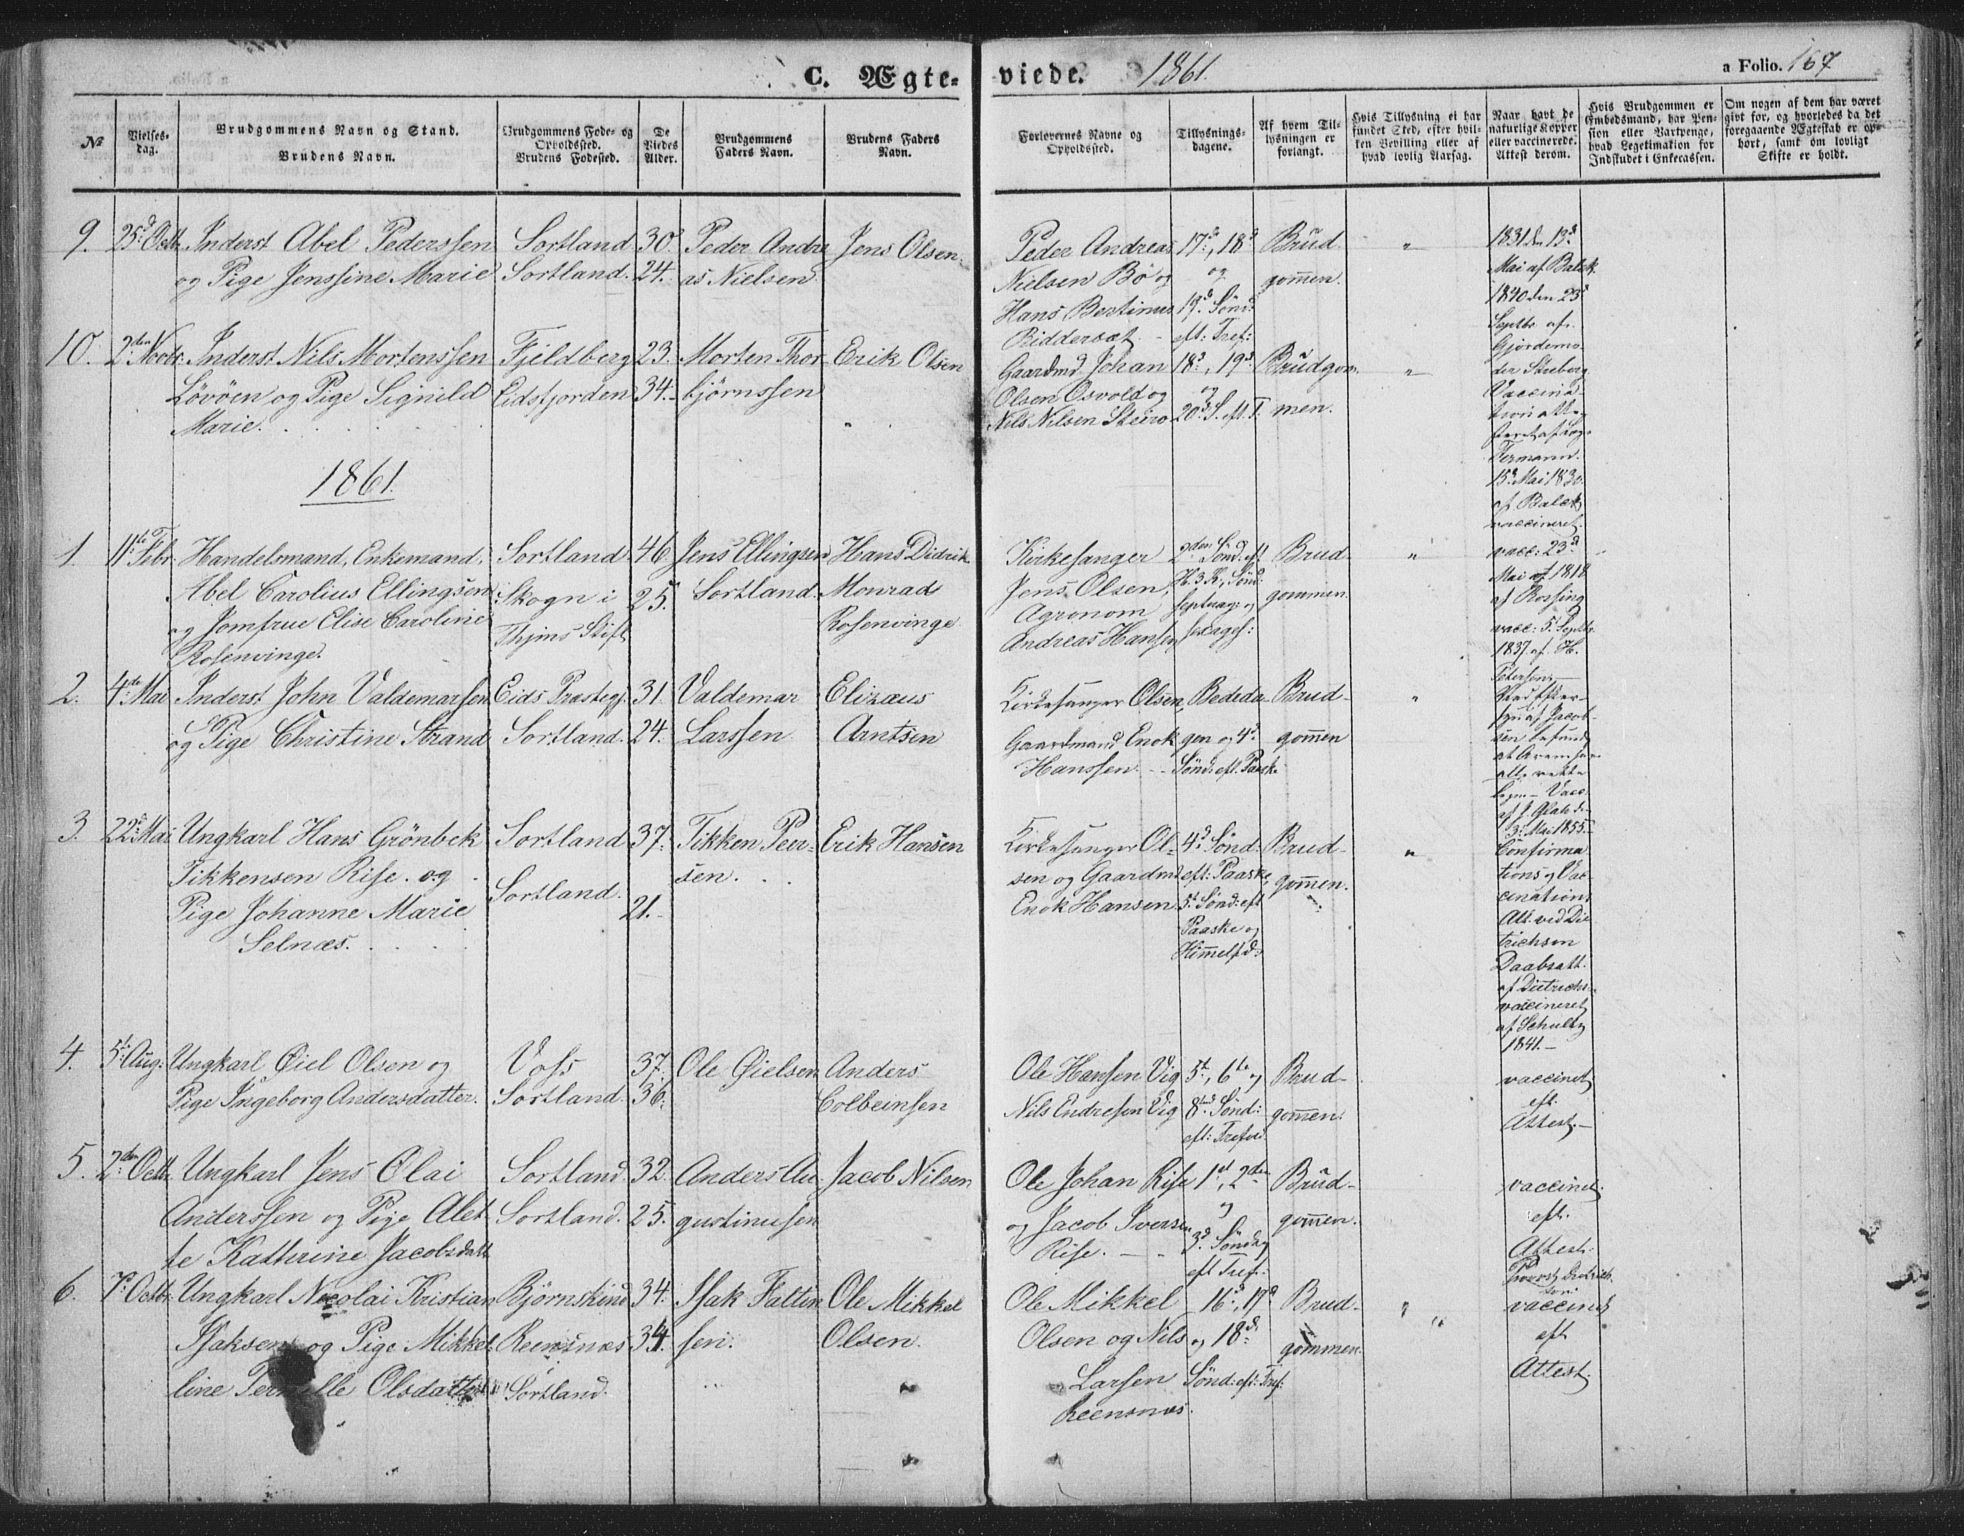 C. Ægte-
viede. 1861.
a Folio. 167
№
Vielses-
dag.
Brudgommens Navn og Stand.
Brudens Navn.
Brudgommens Føde- og
Opholdssted.
Brudens Fødested.
De
Viedes
Alder.
Brudgommens
Faders Navn.
Brudens Faders
Navn.
Forlovernes Navne og
Opholdssted.
Tillysnings-
dagene.
Af hvem Til-
lysningen er
forlangt.
Hvis Tillysning ei har
fundet Sted, efter hvil-
ken Bevilling eller af
hvad lovlig Aarsag.
Naar havt de
naturlige Kopper
eller vaccinerede.
Attest derom.
Hvis Brudgommen er
Embedsmand, har Pen-
sion eller Vartpenge,
hvad Legitimation for
Indskudet i Enkecassen.
Om nogen af dem har været
givt før, og hvorledes da det
foregaaende Ægteskab er op-
hørt, samt om lovligt
Skifte er holdt.
9. 25d Octb. Inderst Abel Pederssen
og Pige Jenssine Marie
Sortland
Sortland.
30.
24.
Peder Andre
as Nielsen
Jens Olsen.
Peder Andreas
Nielsen Bö og
Hans Bertinus
Riddersæt.
17d, 18d
og
19d Sönd.
eft. Tref:
Brud
gommen.
"
1831 den 13d
Mai af
1840 den 23d
Septbr. af
10. 2den Novbr. Inderst Nils Mortenssen
Lövöen og Pige Signild
Marie.
Fjeldberg
Eidsfjorden
23.
34.
Morten Thor
björnssen
Erik Olsen
"
Gaardmd Johan
Olsen Osvold og
Nils Nilsen Steiro
18d, 19d
og
20d S. eft. T.
Brudgom
men.
"
15d Mai 1830
vaccineret.
1861.
1. 11te Febr. Handelsmand, Enkemand,
Abel Carolius Ellingsen
og Jomfrue Elise Caroline
Rosenvinge.
Sortland
Skogn i
Thjms Stift
46
25.
Jens Ellingsen
Sortland.
Hans Didrik
Monrad
Rosenvinge
Kirkesanger
Jens Olsen,
Agronom
Andreas Hansen
2den Sönd. eft
H. 3 K., Sönd:
septuag: og
sexages:
Brud-
gommen.
"
vacc: 23d
Mai 1818
af Rossing
vacc: 5. Septbr.
1837 af H.
Petersen.
2. 4de Mai Inderst John Valdemarsen
og Pige Christine Strand
Eids Præstegj.
Sortland.
31.
24.
Valdemar
Larssen
Elizæus
Arntsen
Kirkesanger Olsen,
Gaardmand Enok
Hanssen.
Bededa-
gen og 4d
Sönd: eft. Paaske
Brud-
gommen
"
3d Mai 1855
3. 22d Mai Ungkarl Hans Grönbek
Tikkensen Rise og
Pige Johanne Marie
Selnæs.
Sortland
Sortland.
37.
21.
Tikken Peer-
sen.
Erik Hansen
Kirkesanger Ol-
sen og Gaardmd
Enok Hansen
4d Sönd.
eft: Paaske,
5t Sönd: eft
Paaske og
Himmelfd:
Brud-
gommen.
"
Confirma
tions og Vac
cinations
Att. ved Die
trichsen
Daabsatt.
af Dietrichs.
vaccineret
af Schultz
1841.
4. 5t Aug: Ungkarl Øiel Olsen og
Pige Ingeborg Andersdatter.
Voss
Sortland.
37.
36.
Ole Øielsen
Anders
Colbeinsen
Ole Hansen Vig
Nils Endresen Vig
5t, 6te og
8nd Sönd:
eft: Trefol.
Brud-
gommen.
vaccinet
eft.
Attest.
5. 2den Octb. Ungkarl Jens Olai
Anderssen og Pige Alet
te Kathrine Jacobsdatt
Sortland
Sortland.
32.
25.
Anders Au
gustinusen
Jacob Nilsen
Ole Johan Rise
og Jacob Iversen
Rise.
1st, 2den
og
3d Söndag
eft Tref:
Brud-
gommen.
vaccinet
eft.
Attest.
6. 7d Octbr. Ungkarl Nicolai Kristian
Isaksen og Pige Mikkel
line Pernille Olsdatter
Björnskind
Reensnæs
i Sortland.
34.
34.
Isak Fattin
sen.
Ole Mikkel
Olsen.
Ole Mikkel
Olsen og Nils
Larsen
Reensnæs.
16d, 17d
og 18d
Sönd: eft: Tref:
Brud-
gommen.
"
vaccinet
eft
Attest.